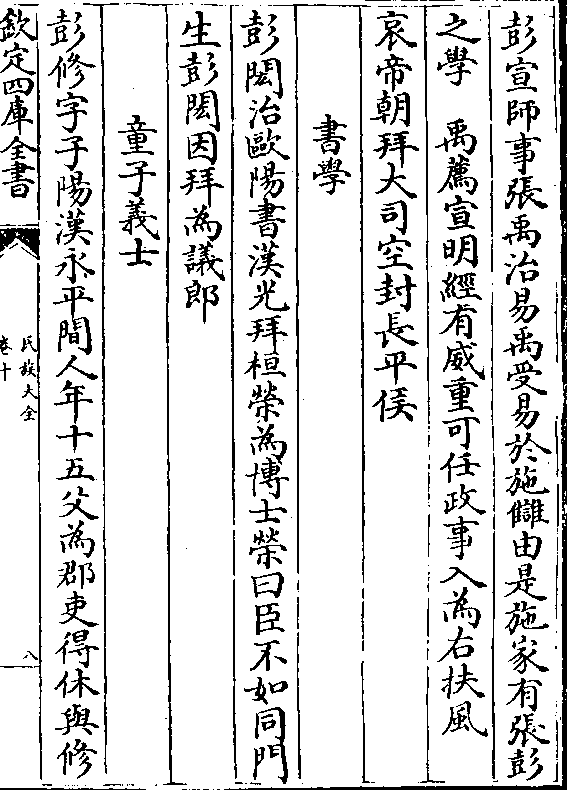 彭宣師事張禹治易禹受易於施讎由是施家有張彭
之學　禹薦宣明經有威重可任政事入為右扶風
哀帝朝拜大司空封長平侯
書學
彭閎治歐陽書漢光拜桓榮為博士榮曰臣不如同門
生彭閎因拜為議郎
童子義士
彭修字子陽漢永平間人年十五父為郡吏得休與修
欽定四庫全書
氏族大全
卷十
八